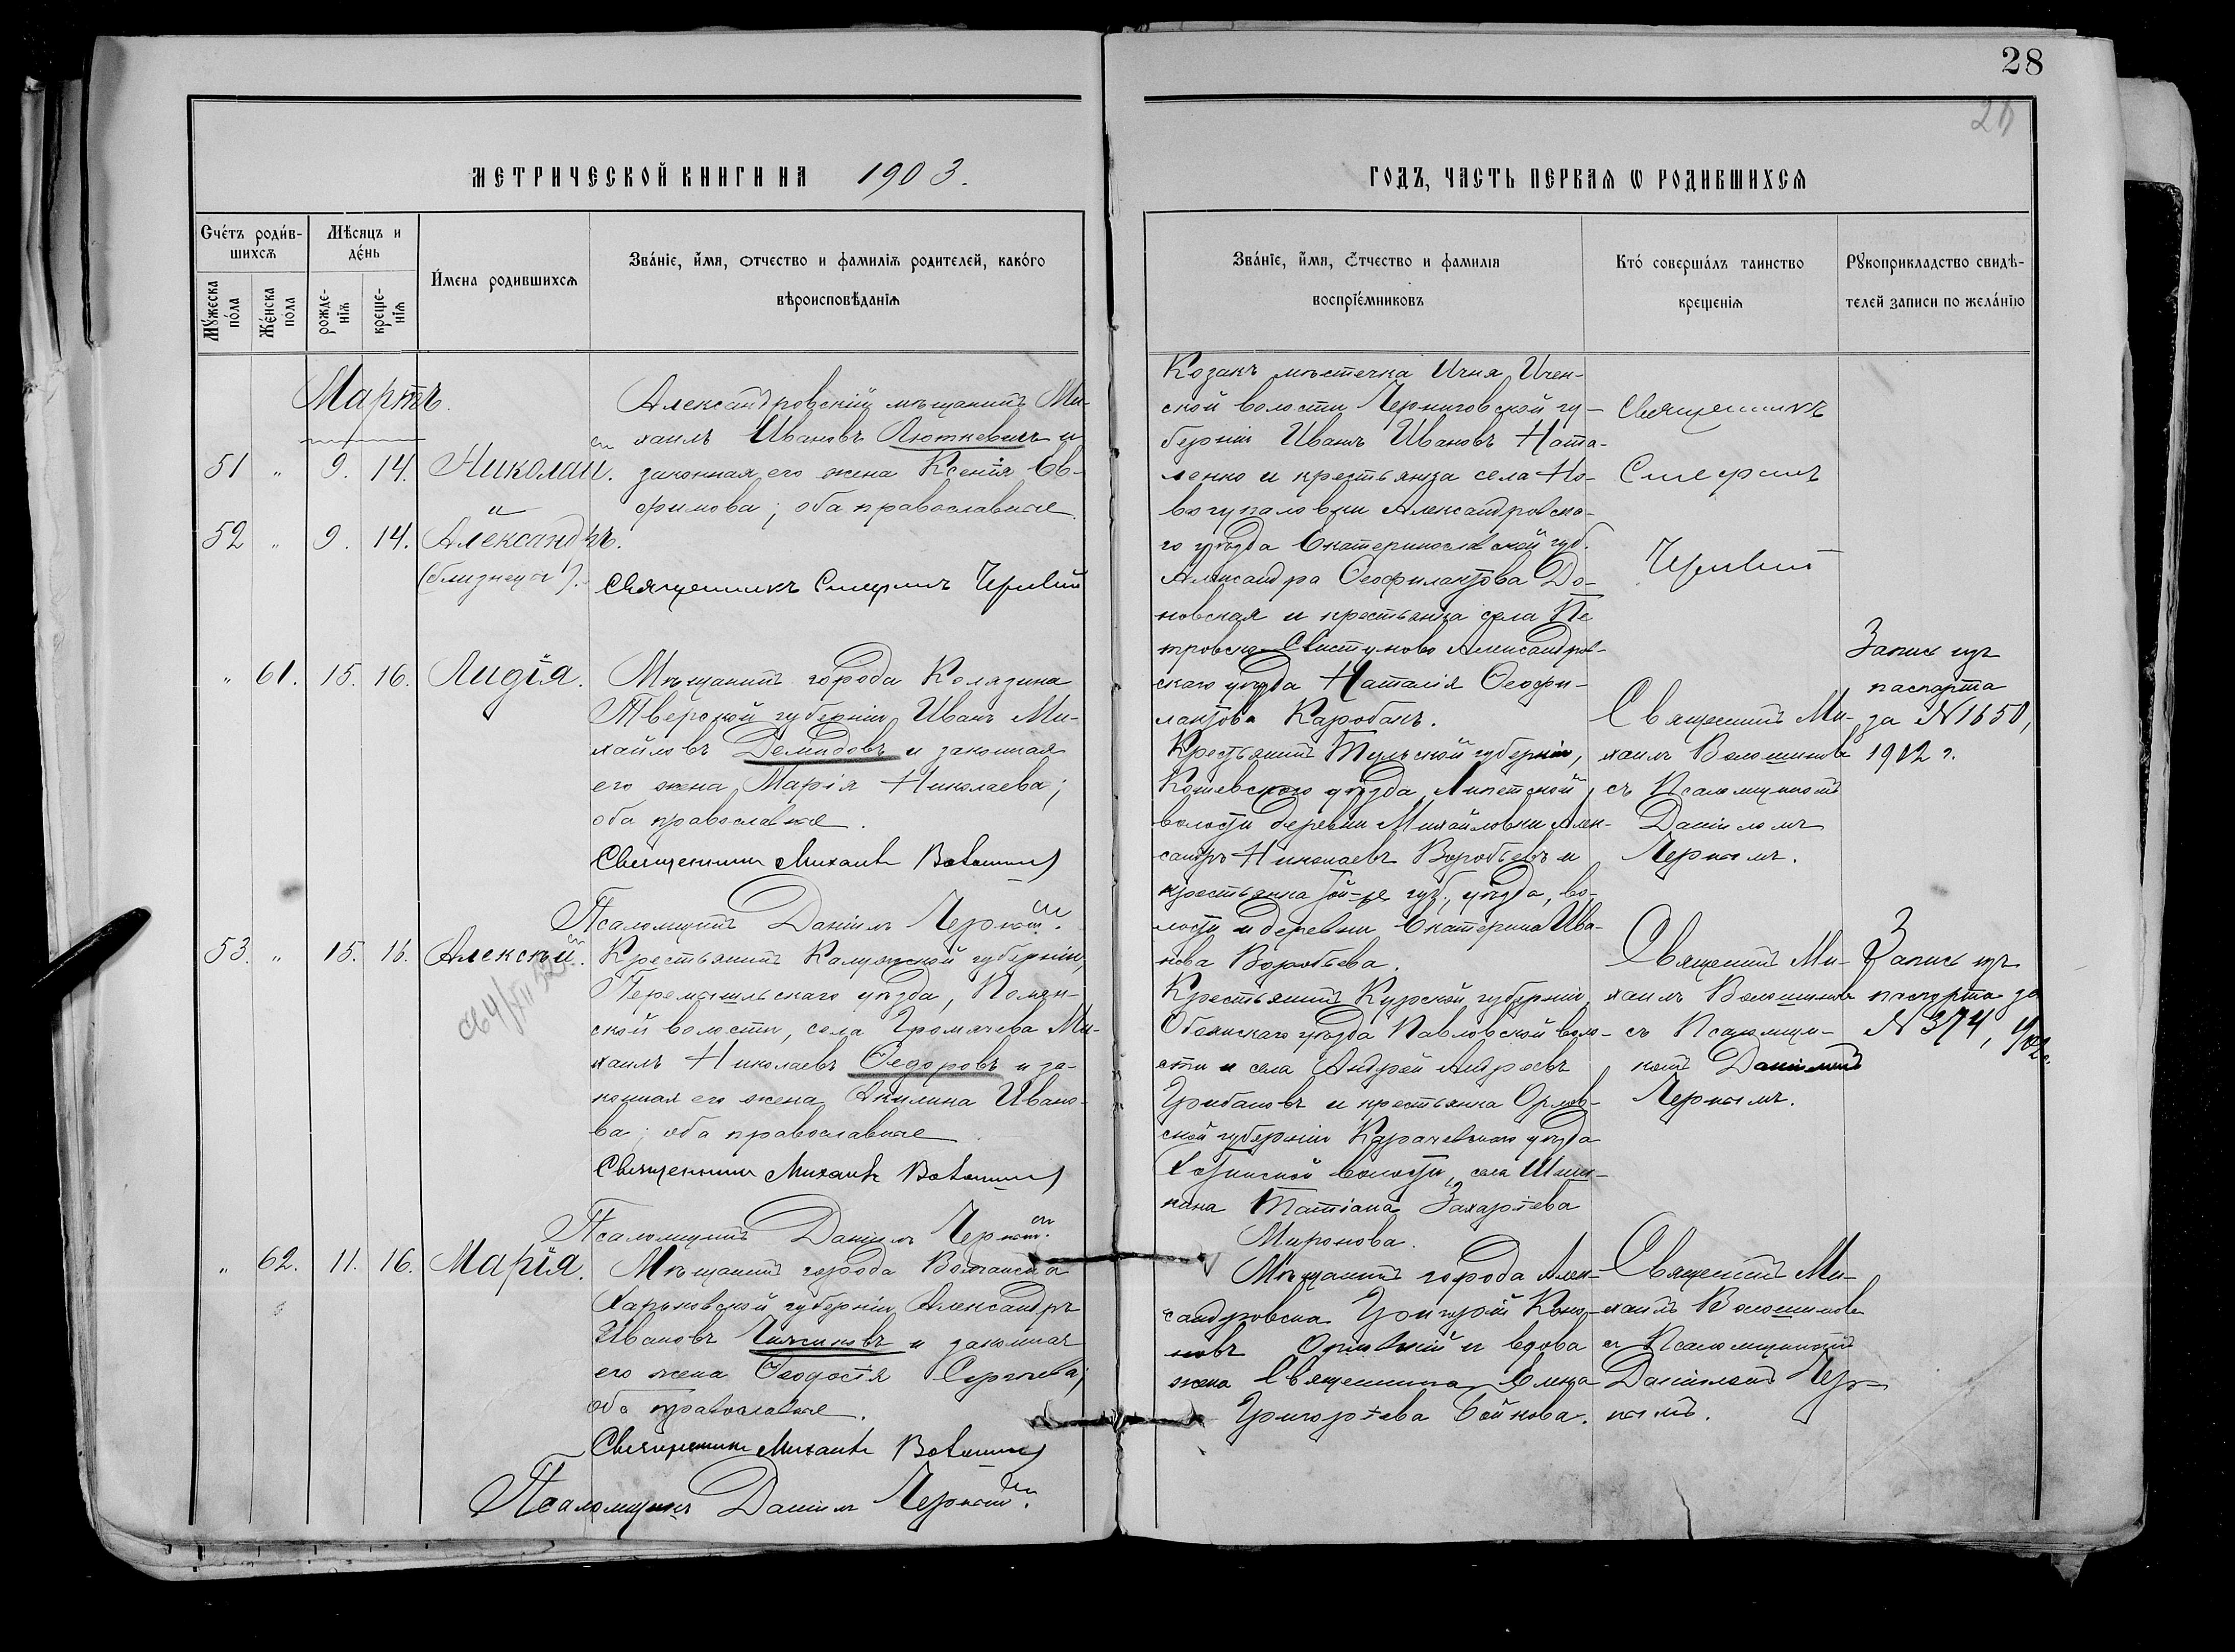 28
МЕТРИЧЕСКОЙ КНИГИ НА 1903.
ГОДЪ, ЧАСТЬ ПЕРВАЯ Ѡ РОДИВШИХСЯ
Счéтъ роди́в-
шихся
Мѣсяцъ и
дéнь
Му́жеска
пóла
Жéнска
пóла
рожде-
нія
креще-
нія
И́мена родившихся
Звáніе, и́мя, отчество и фамилія родителей, какóго
вѣроисповѣ́данія
Звáніе, и́мя, óтчество и фамилія
воспріéмниковъ
Ктó совершáлъ таинство
крещенія
Рукоприкладство свидѣ-
телей записи по желáнію
Мартъ.
51 " 9. 14. Николай.
и
52 " 9. 14. Александръ.
(близнецы).
Александровскій мѣщанинъ Ми-
хаилъ Ивановъ Люткевичъ и
законная его жена Ксенія Ев-
фимова; оба православные.
Священникъ Чернявскій
Козакъ мѣстечка Ичня, Ичен-
ской волости Черниговской гу-
берніи Иванъ Ивановъ Ната-
ленко и крестьянка села Но-
вогупаловки Александровска-
го уѣзда Екатеринославской губ.
Александра Ѳеофилактова До-
новская и крестьянка села Пе
тровско-Свистуново Александров-
скаго уѣзда Наталія Ѳеофи-
лактова Каробань.
Священникъ
" 61. 15. 16. Лидія.
Мѣщанинъ города Колязина
Тверской губерніи, Иванъ Ми-
хайловъ Демидовъ и законная
его жена Марія Николаева;
оба православные.
Священникъ Михаилъ Волошиновъ
Псаломщикъ Даніилъ Черный.
Крестьянинъ Тульской губерніи,
уѣзда, Липетской
волости деревни Михайловки Алек-
сандръ Николаевъ Воробьевъ и
крестьянка той-же губ., уѣзда, во-
лости и деревни Екатерина Ива-
нова Воробьева.
Священникъ Ми-
хаилъ Волошиновъ
съ Псаломщикомъ
Даніиломъ
Чернымъ.
Запись изъ
паспорта
за №1650,
1902 г.
53. " 15. 16. Алексѣй.
Крестьянинъ Калужской губерніи,
Перемышльскаго уѣзда,
ской волости, села Громачева Ми-
хаилъ Николаевъ Ѳедоровъ и за-
конная его жена Акилина Ивано-
ва; оба православные
Священникъ Михаилъ Волошиновъ
Псаломщикъ Даніилъ Черный.
Крестьянинъ Курской губерніи,
Обоянскаго уѣзда Павловской воло-
сти и села Андрей Андреевъ
Грибановъ и крестьянка Орлов-
ской губерніи Карачевскаго уѣзда
волости, села
Татіана Захаріева
Миронова.
Священникъ Ми-
хаилъ Волошиновъ
съ Псаломщи-
комъ Даніиломъ
Чернымъ.
Запись изъ
паспорта за
№374, 902 г.
" 62. 11. 16. Марія.
Мѣщанинъ города Волчанска
Харьковской губерніи, Александръ
Ивановъ Чижиковъ и законная
его жена Ѳеодосія Сергѣева;
оба православные.
Священникъ Михаилъ Волошиновъ
Псаломщикъ Даніилъ Черный.
Мѣщанинъ города Алек-
сандровска Григорій Коно-
новъ и вдова
жена Священника Елена
Григоріева Бойкова.
Священникъ Ми-
хаилъ Волошиновъ
съ Псаломщикомъ
Даніиломъ Чер-
нымъ.